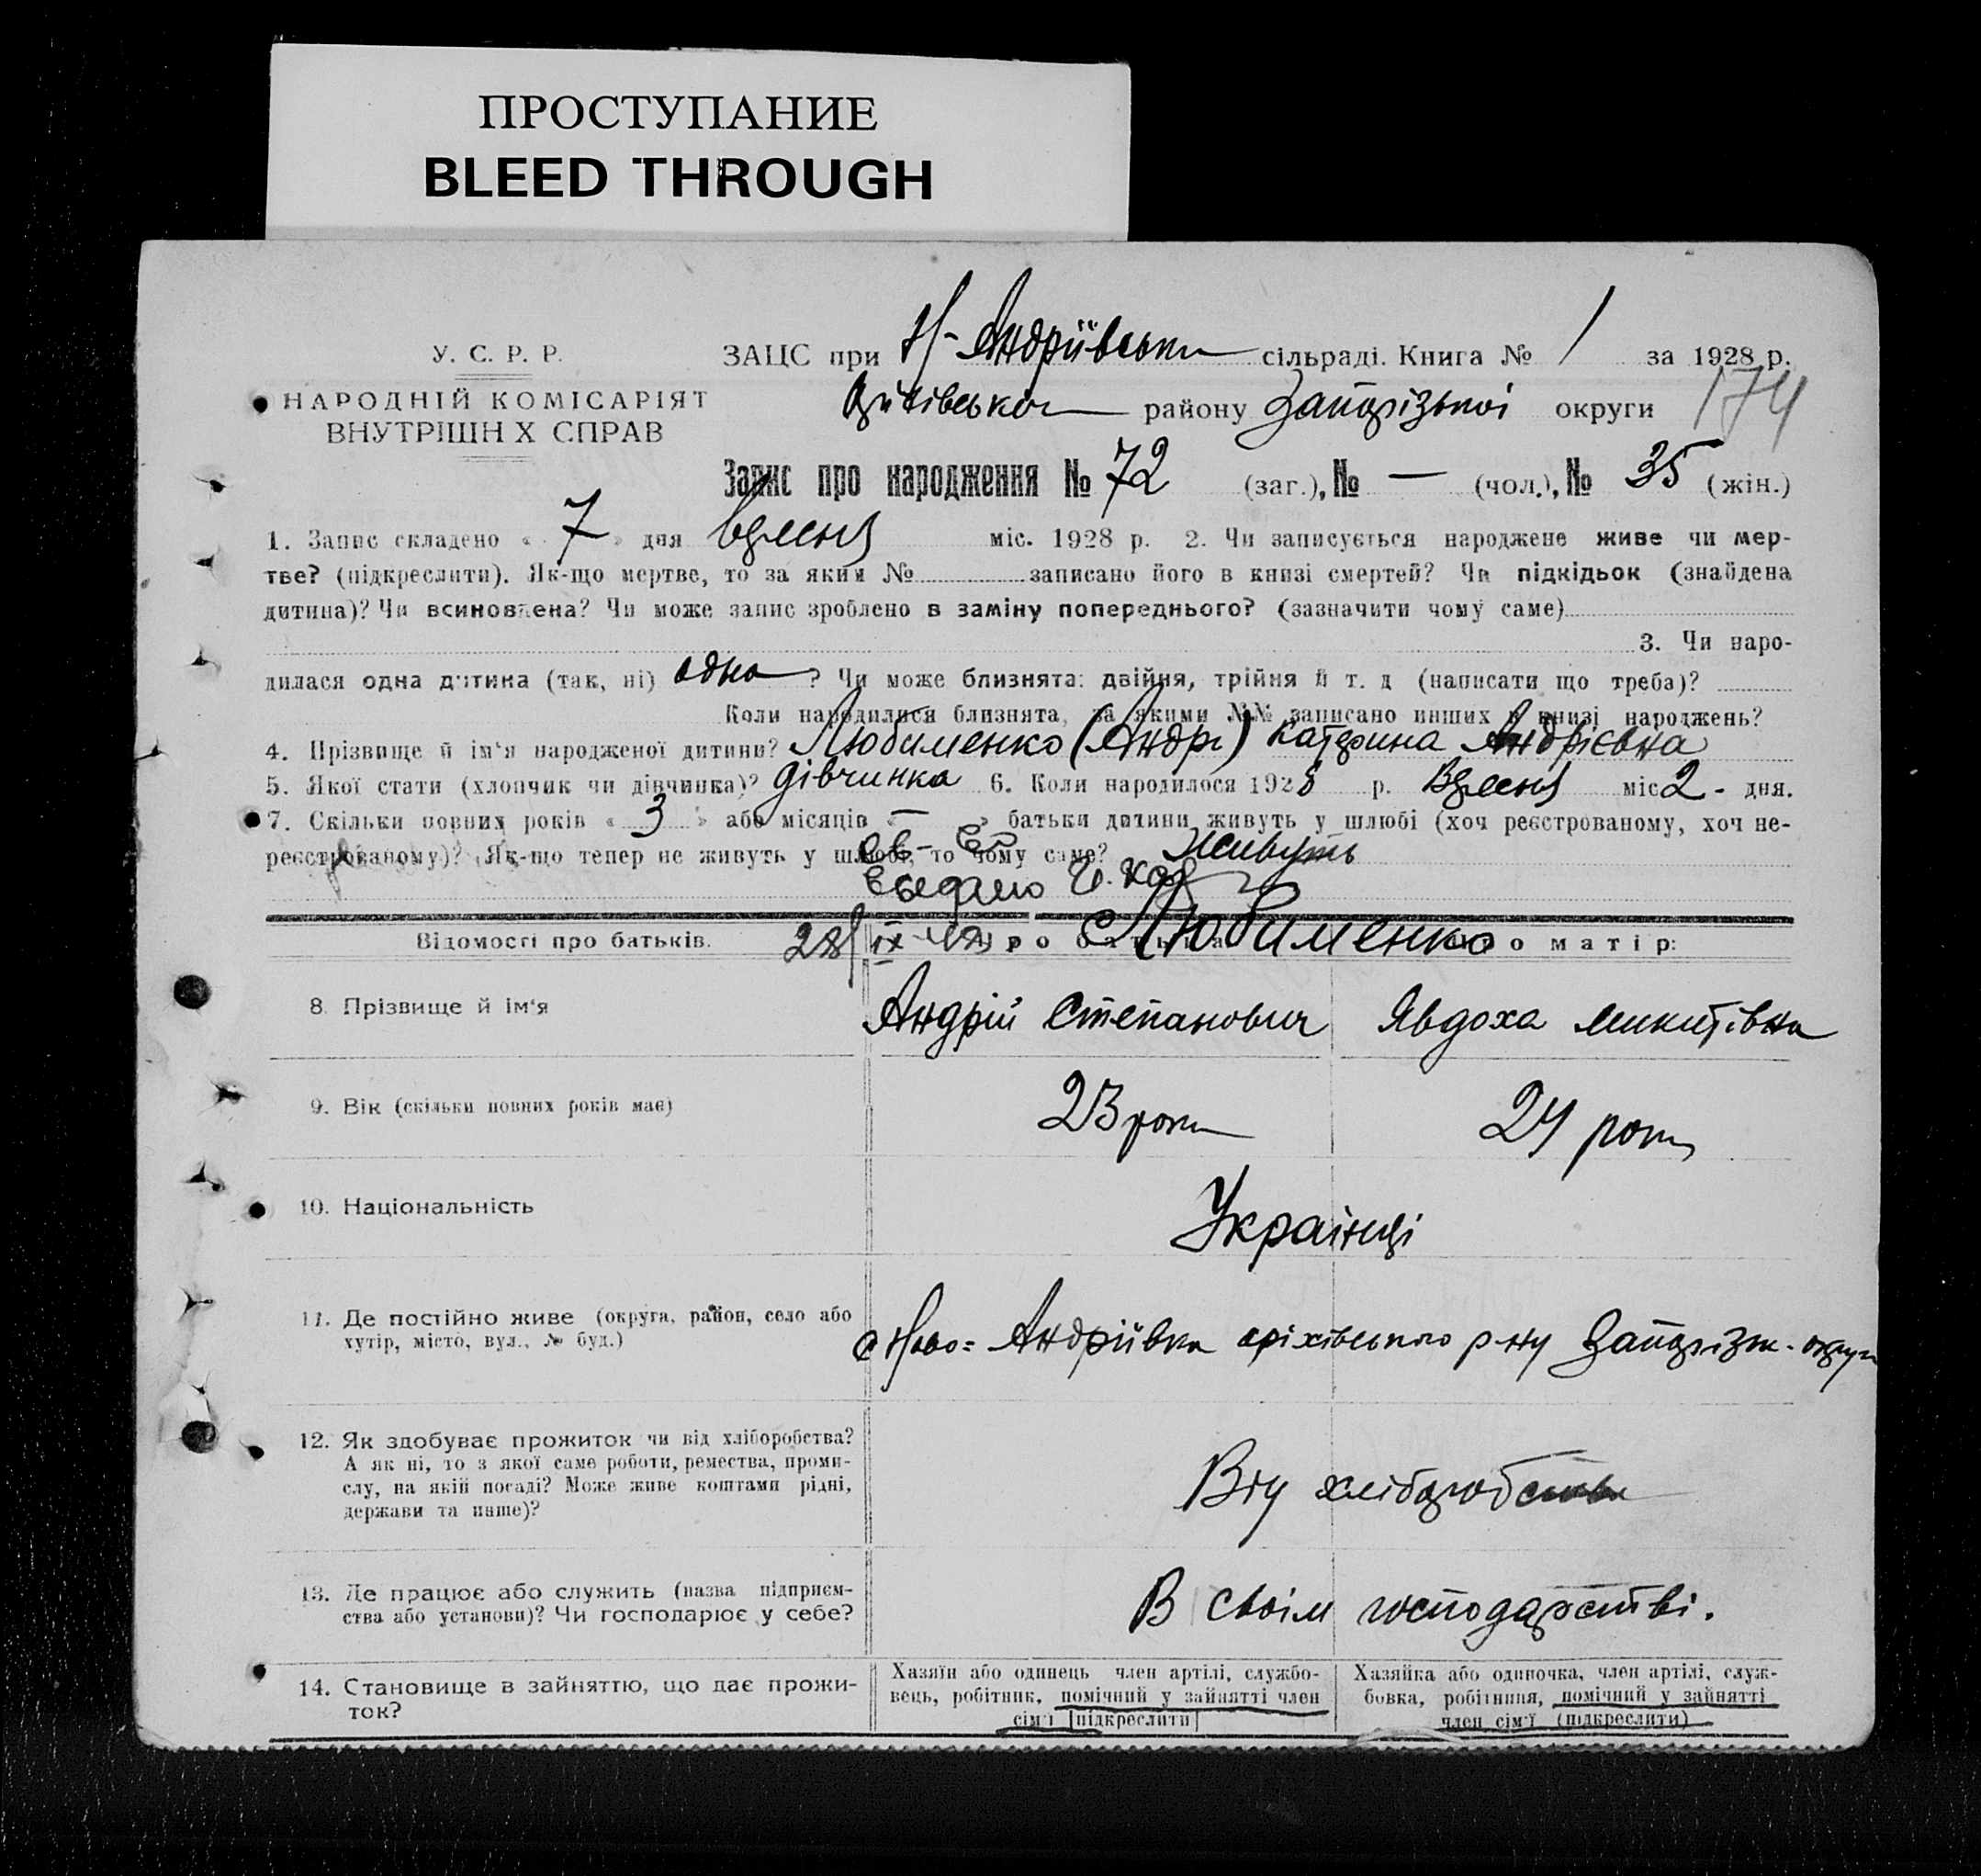 ПРОСТУПАНИЕ
BLEED THROUGH
У. С. Р. Р.
НАРОДНІЙ КОМІСАРІЯТ
ВНУТРІШН Х СПРАВ
ЗАЦС при Н-Андріївськи сільраді. Книга № 1 за 1928 р.
району Запорізької округи 174
Запис про народження № 72 (заг.), № — (чол.), № 35 (жін.)
1. Запис складено « 7 » дня вересня міс. 1928 р. 2. Чи записується народжене живе чи мер-
тве? (підкреслити). Як-що мертве, то за яким № записано його в книзі смертей? Чи підкідьок (знайдена
дитина)? Чи всиновлена? Чи може запис зроблено в заміну попереднього? (зазначити чому саме)
3. Чи наро-
дилася одна дитина (так, ні) одна ? Чи може близнята: двійня, трійня й т. д (написати що треба)?
Коли народилися близнята, за якими №№ записано инших в книзі народжень?
4. Прізвище й ім'я народженої дитини? Любименко (Андрі) Катерина Андрієвна
5. Якої стати (хлопчик чи дівчинка)? дівчинка 6. Коли народилося 1928 р. Вересня міс 2 - дня.
7. Скільки повних років « 3 » або місяців « — » батьки дитини живуть у шлюбі (хоч реєстрованому, хоч не-
реєстрованому)? Як-що тепер не живуть у шлюбі, то чому саме? живуть
св-во
Відомості про батьків. 28/IX Про батька Любименко Про матір:
8. Прізвище й ім'я Андрій Степанович Явдоха Микитівна
9. Вік (скільки повних років має) 23 роки 24 роки
10. Національність Українці
11. Де постійно живе (округа, район, село або
хутір, місто, вул., № буд.)
с Ново=Андріївка оріхівського р-ну Запорізьк. округи
12. Як здобуває прожиток чи від хліборобства?
А як ні, то з якої саме роботи, ремества, проми-
слу, на якій посаді? Може живе коштами рідні,
держави та инше)?
Від хліборобства
13. Де працює або служить (назва підприєм-
ства або установи)? Чи господарює у себе?
В своїм господарстві.
14. Становище в зайняттю, що дає прожи-
ток?
Хазяїн або одинець член артілі, службо-
вець, робітник, помічний у зайнятті член
сім'ї [підкреслити]
Хазяйка або одиночка, член артілі, служ-
бовка, робітниця, помічний у зайнятті
член сім'ї (підкреслити)